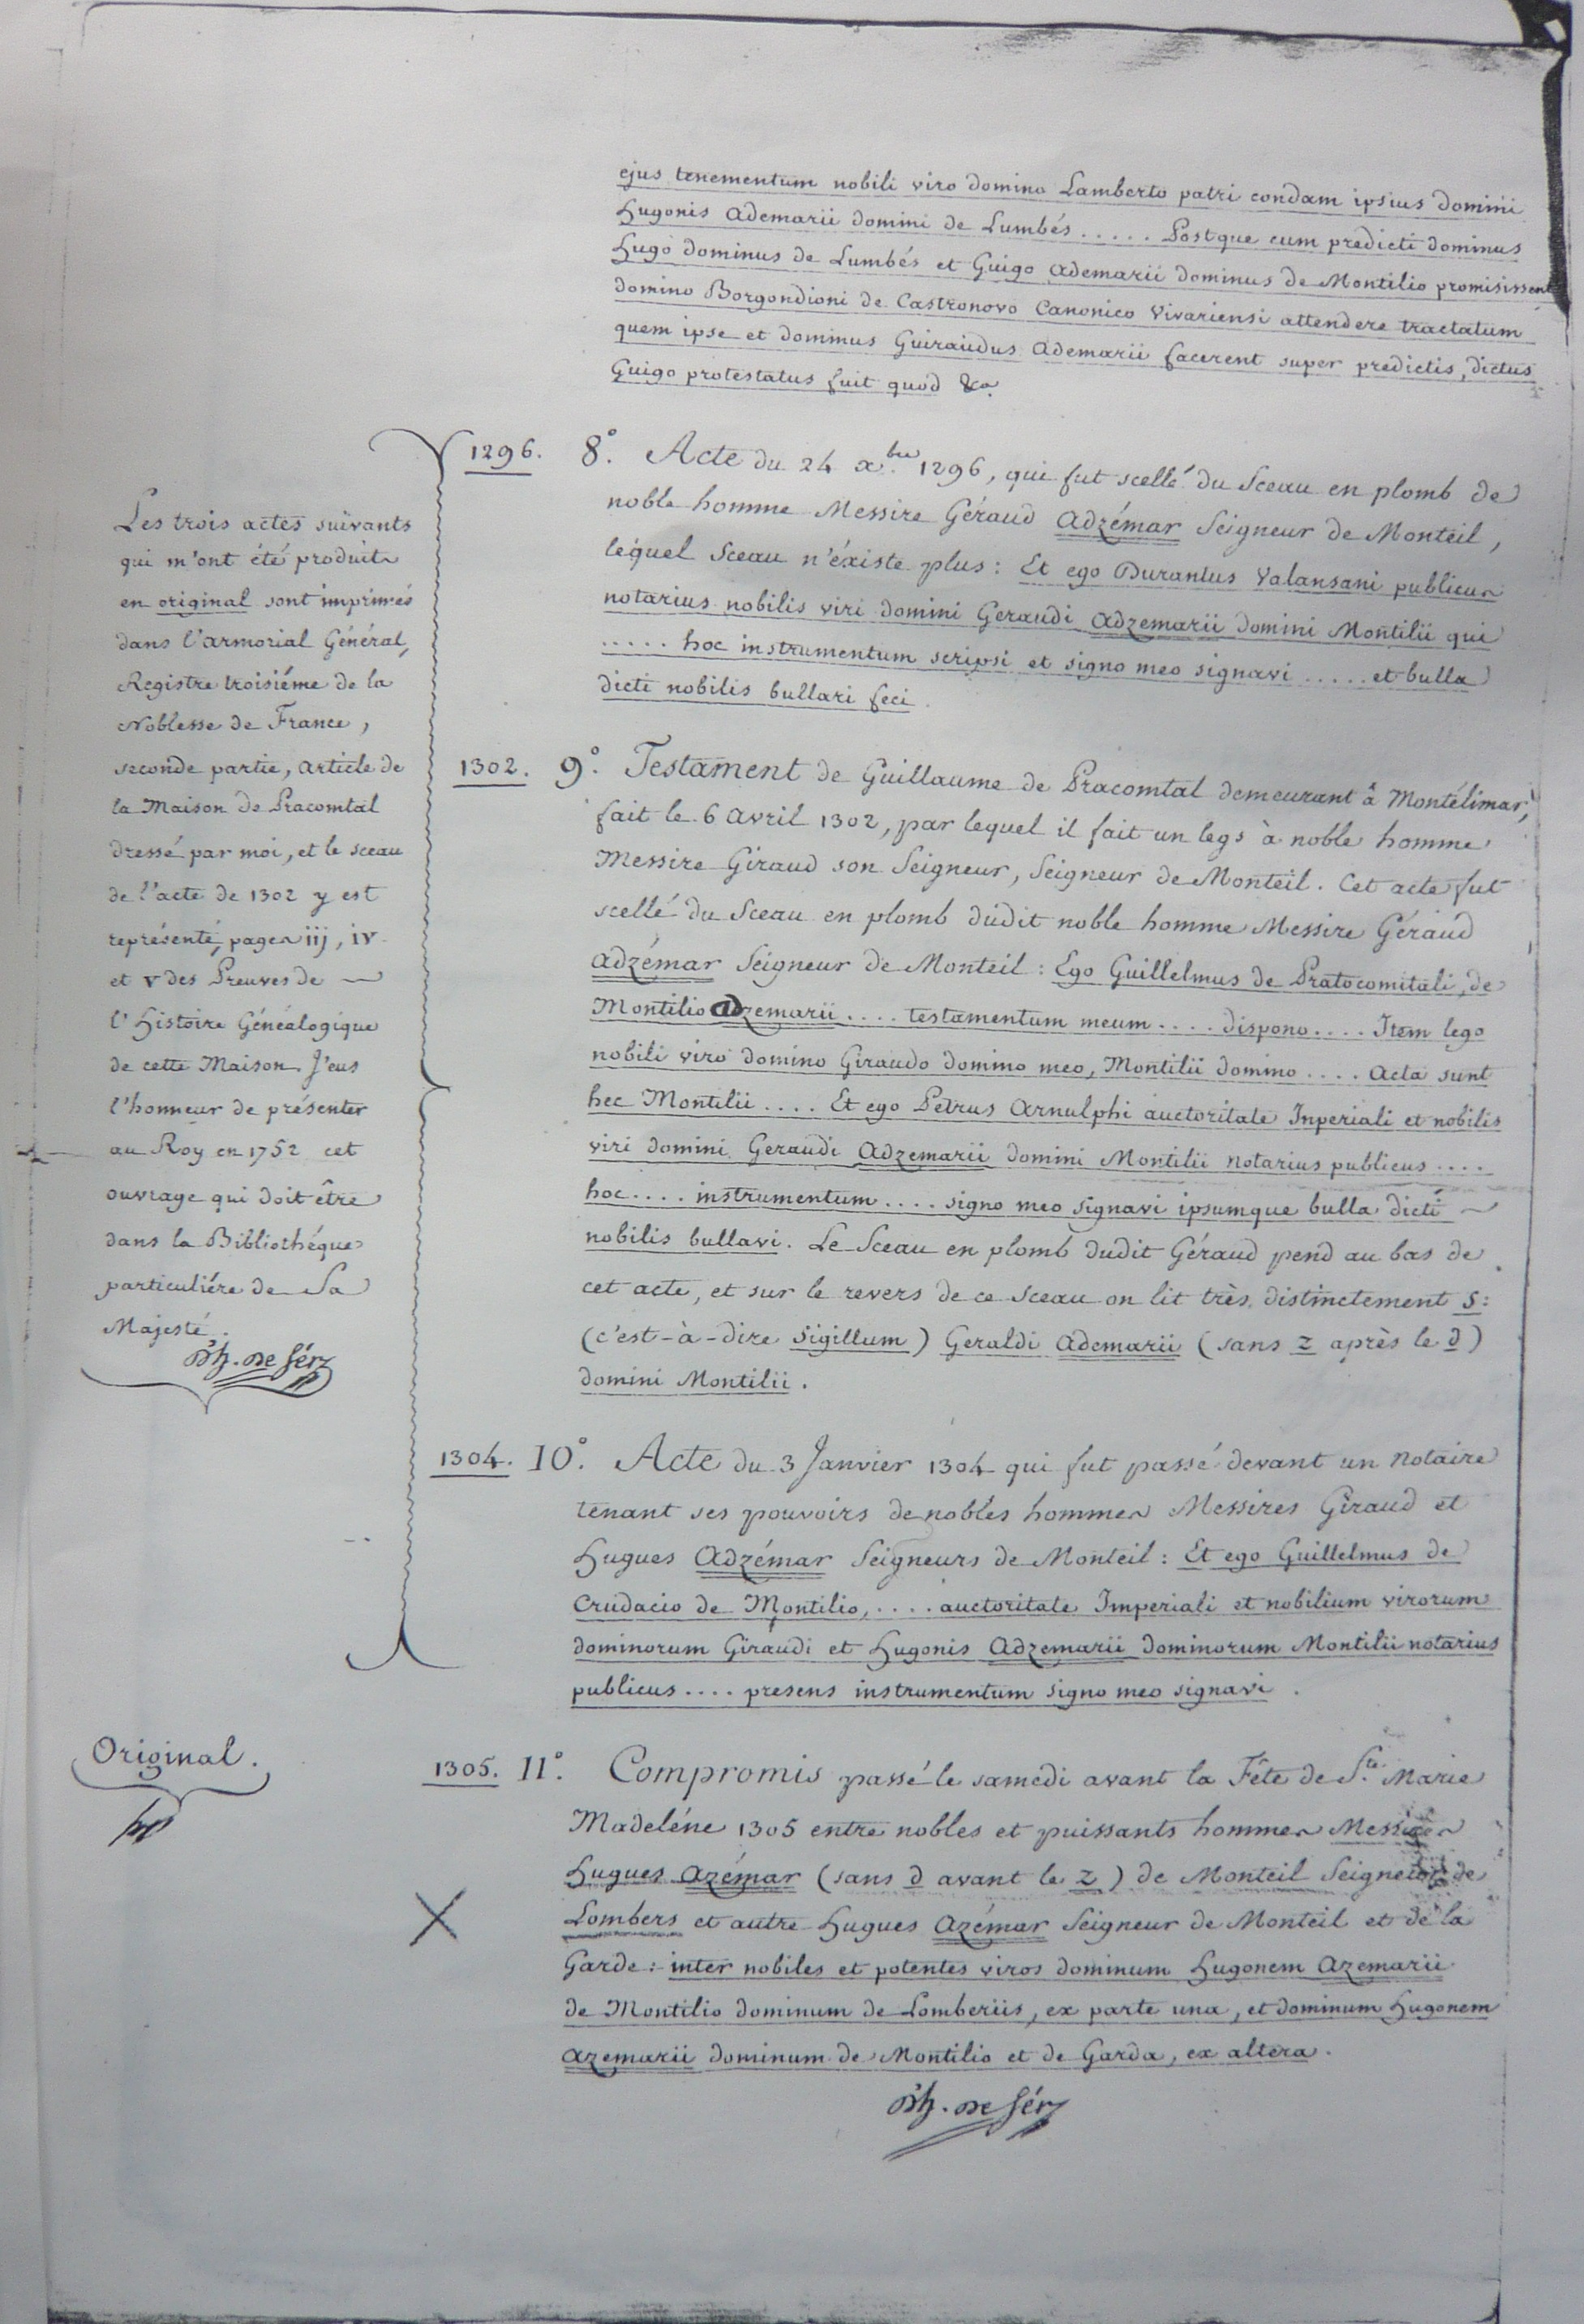 ejus tenementum nobili viro domino Lamberto patri condam ipsius domini
Hugonis Ademarii domini de Lumbés ..... Postque cum predicti dominus
Hugo dominus de Lumbés et Guigo Ademarii dominus de Montilio promisissent
domino Borgondioni de Castronovo Canonico Vivariensi attendere tractatum
quem ipse et dominus Guiraudus Ademarii facerent super predictis, dictus
Guigo protestatus fuit quód &a.
1296. 8°. Acte du 24 xbre 1296, qui fut scellé du Sceau en plomb de
noble homme Messire Géraud Adzémar Seigneur de Monteil,
lequel Sceau n'éxiste plus: Et ego Durantus Valansani publicus
notarius nobilis viri domini Geraudi Adzemarii domini Montilii qui
..... hoc instrumentum scripsi et signo meo signavi ..... et bulla
dicti nobilis bullari feci.
Les trois actes suivants
qui m'ont été produits
en original sont imprimés
dans l'armorial Général,
Registre troisiéme de la
Noblesse de France,
seconde partie, article de
la Maison de Pracomtal
dressé par moi, et le sceau
de l'acte de 1302 y est
représenté, pages iij, iv
et v des Preuves de
l'Histoire Généalogique
de cette Maison. J'eus
l'honneur de présenter
au Roy en 1752 cet
ouvrage qui doit être
dans la Bibliothéque
particuliére de Sa
Majesté.
D'h. de Sérz
1302. 9°. Testament de Guillaume de Pracomtal demeurant à Montélimar,
fait le 6 Avril 1302, par lequel il fait un legs à noble homme
Messire Giraud son Seigneur, Seigneur de Monteil. Cet acte fut
scellé du Sceau en plomb dudit noble homme Messire Géraud
Adzémar Seigneur de Monteil: Ego Guillelmus de Pratocomitali, de
Montilio Adzemarii .... testamentum meum .... dispono .... Item lego
nobili viro domino Giraudo domino meo, Montilii domino .... Acta sunt
hec Montilii .... Et ego Petrus Arnulphi auctoritate Inperiali et nobilis
viri domini Geraudi Adzemarii domini Montilii notarius publicus ....
hoc .... instrumentum .... signo meo signavi ipsumque bulla dicti
nobilis bullavi. Le Sceau en plomb dudit Géraud pend au bas de
cet acte, et sur le revers de ce Sceau on lit très distinctement S:
(c'est-à-dire Sigillum) Geraldi Ademarii (sans z après le d)
domini Montilii.
1304. 10°. Acte du 3 Janvier 1304 qui fut passé devant un Notaire
tenant ses pouvoirs de nobles hommes Messires Giraud et
Hugues Adzémar Seigneurs de Monteil: Et ego Guillelmus de
Crudacio de Montilio, .... auctoritate Imperiali et nobilium virorum
dominorum Giraudi et Hugonis Adzemarii dominorum Montilii notarius
publicus .... presens instrumentum signo meo signavi.
Original.
1305. 11°. Compromis passé le samedi avant la Fête de Ste. Marie
Madeléne 1305 entre nobles et puissants hommes Messires
Hugues Azémar (sans d avant le z) de Monteil Seigneur de
Lombers et autre Hugues Azémar Seigneur de Monteil et de la
Garde: inter nobiles et potentes viros dominum Hugonem Azemarii
de Montilio dominum de Lomberiis, ex parte una, et dominum Hugonem
Azemarii dominum de Montilio et de Garda, ex altera.
D'h. de Sérz